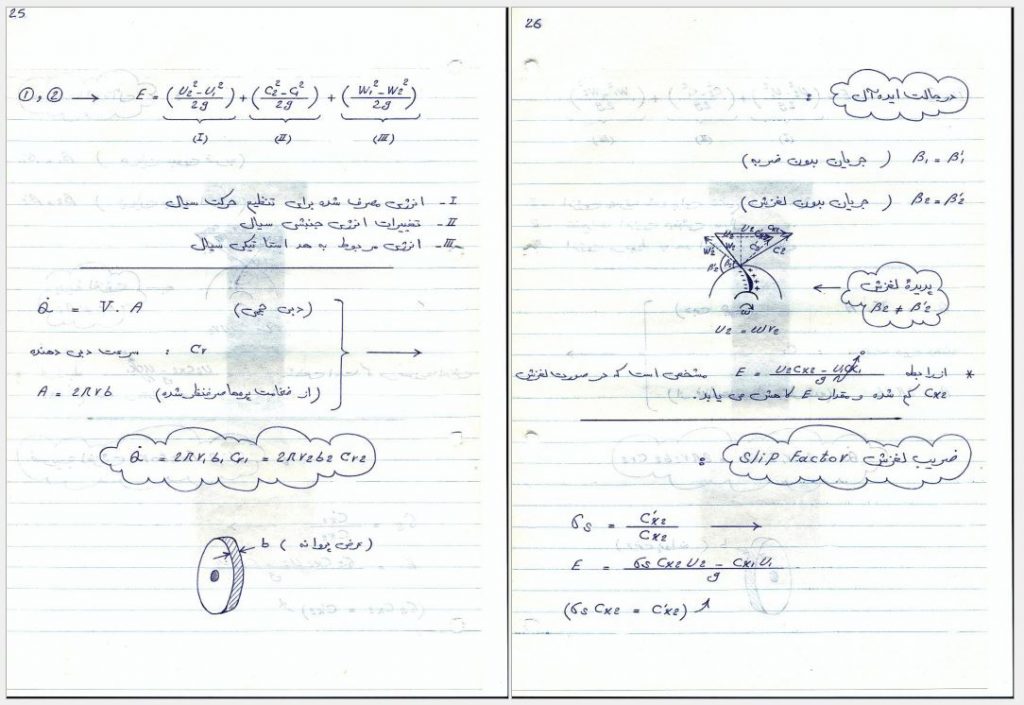 25
①, ② → E = (U₂² - U₁² / 2g) + (C₂² - C₁² / 2g) + (W₁² - W₂² / 2g)
(I) (II) (III)
I - انرژی مصرف شده برای تنظیم حرکت سیال
II - تغییرات انرژی جنبشی سیال
III - انرژی مربوط به هد استاتیکی سیال
Q̇ = V . A (دبی حجمی)
سرعت دبی دهنده : Cr →
A = 2πrb (از ضخامت پره‌ها صرفنظر شده)
Q̇ = 2πr₁b₁Cr₁ = 2πr₂b₂Cr₂
b (عرض پروانه)
26
در حالت ایده آل :
β₁ = β₁′ (جریان بدون ضربه)
β₂ = β₂′ (جریان بدون لغزش)
U₂ = ωr₂
پدیدهٔ لغزش
β₂ ≠ β₂′
* از رابطه E = U₂Cx₂ - U₁Cx₁ / g مشخص است که در صورت لغزش
Cx₂ کم شده و مقدار E کاهش می یابد.
ضریب لغزش Slip Factor :
σs = C′x₂ / Cx₂ →
E = σs Cx₂ U₂ - Cx₁ U₁ / g
(σs Cx₂ = C′x₂)